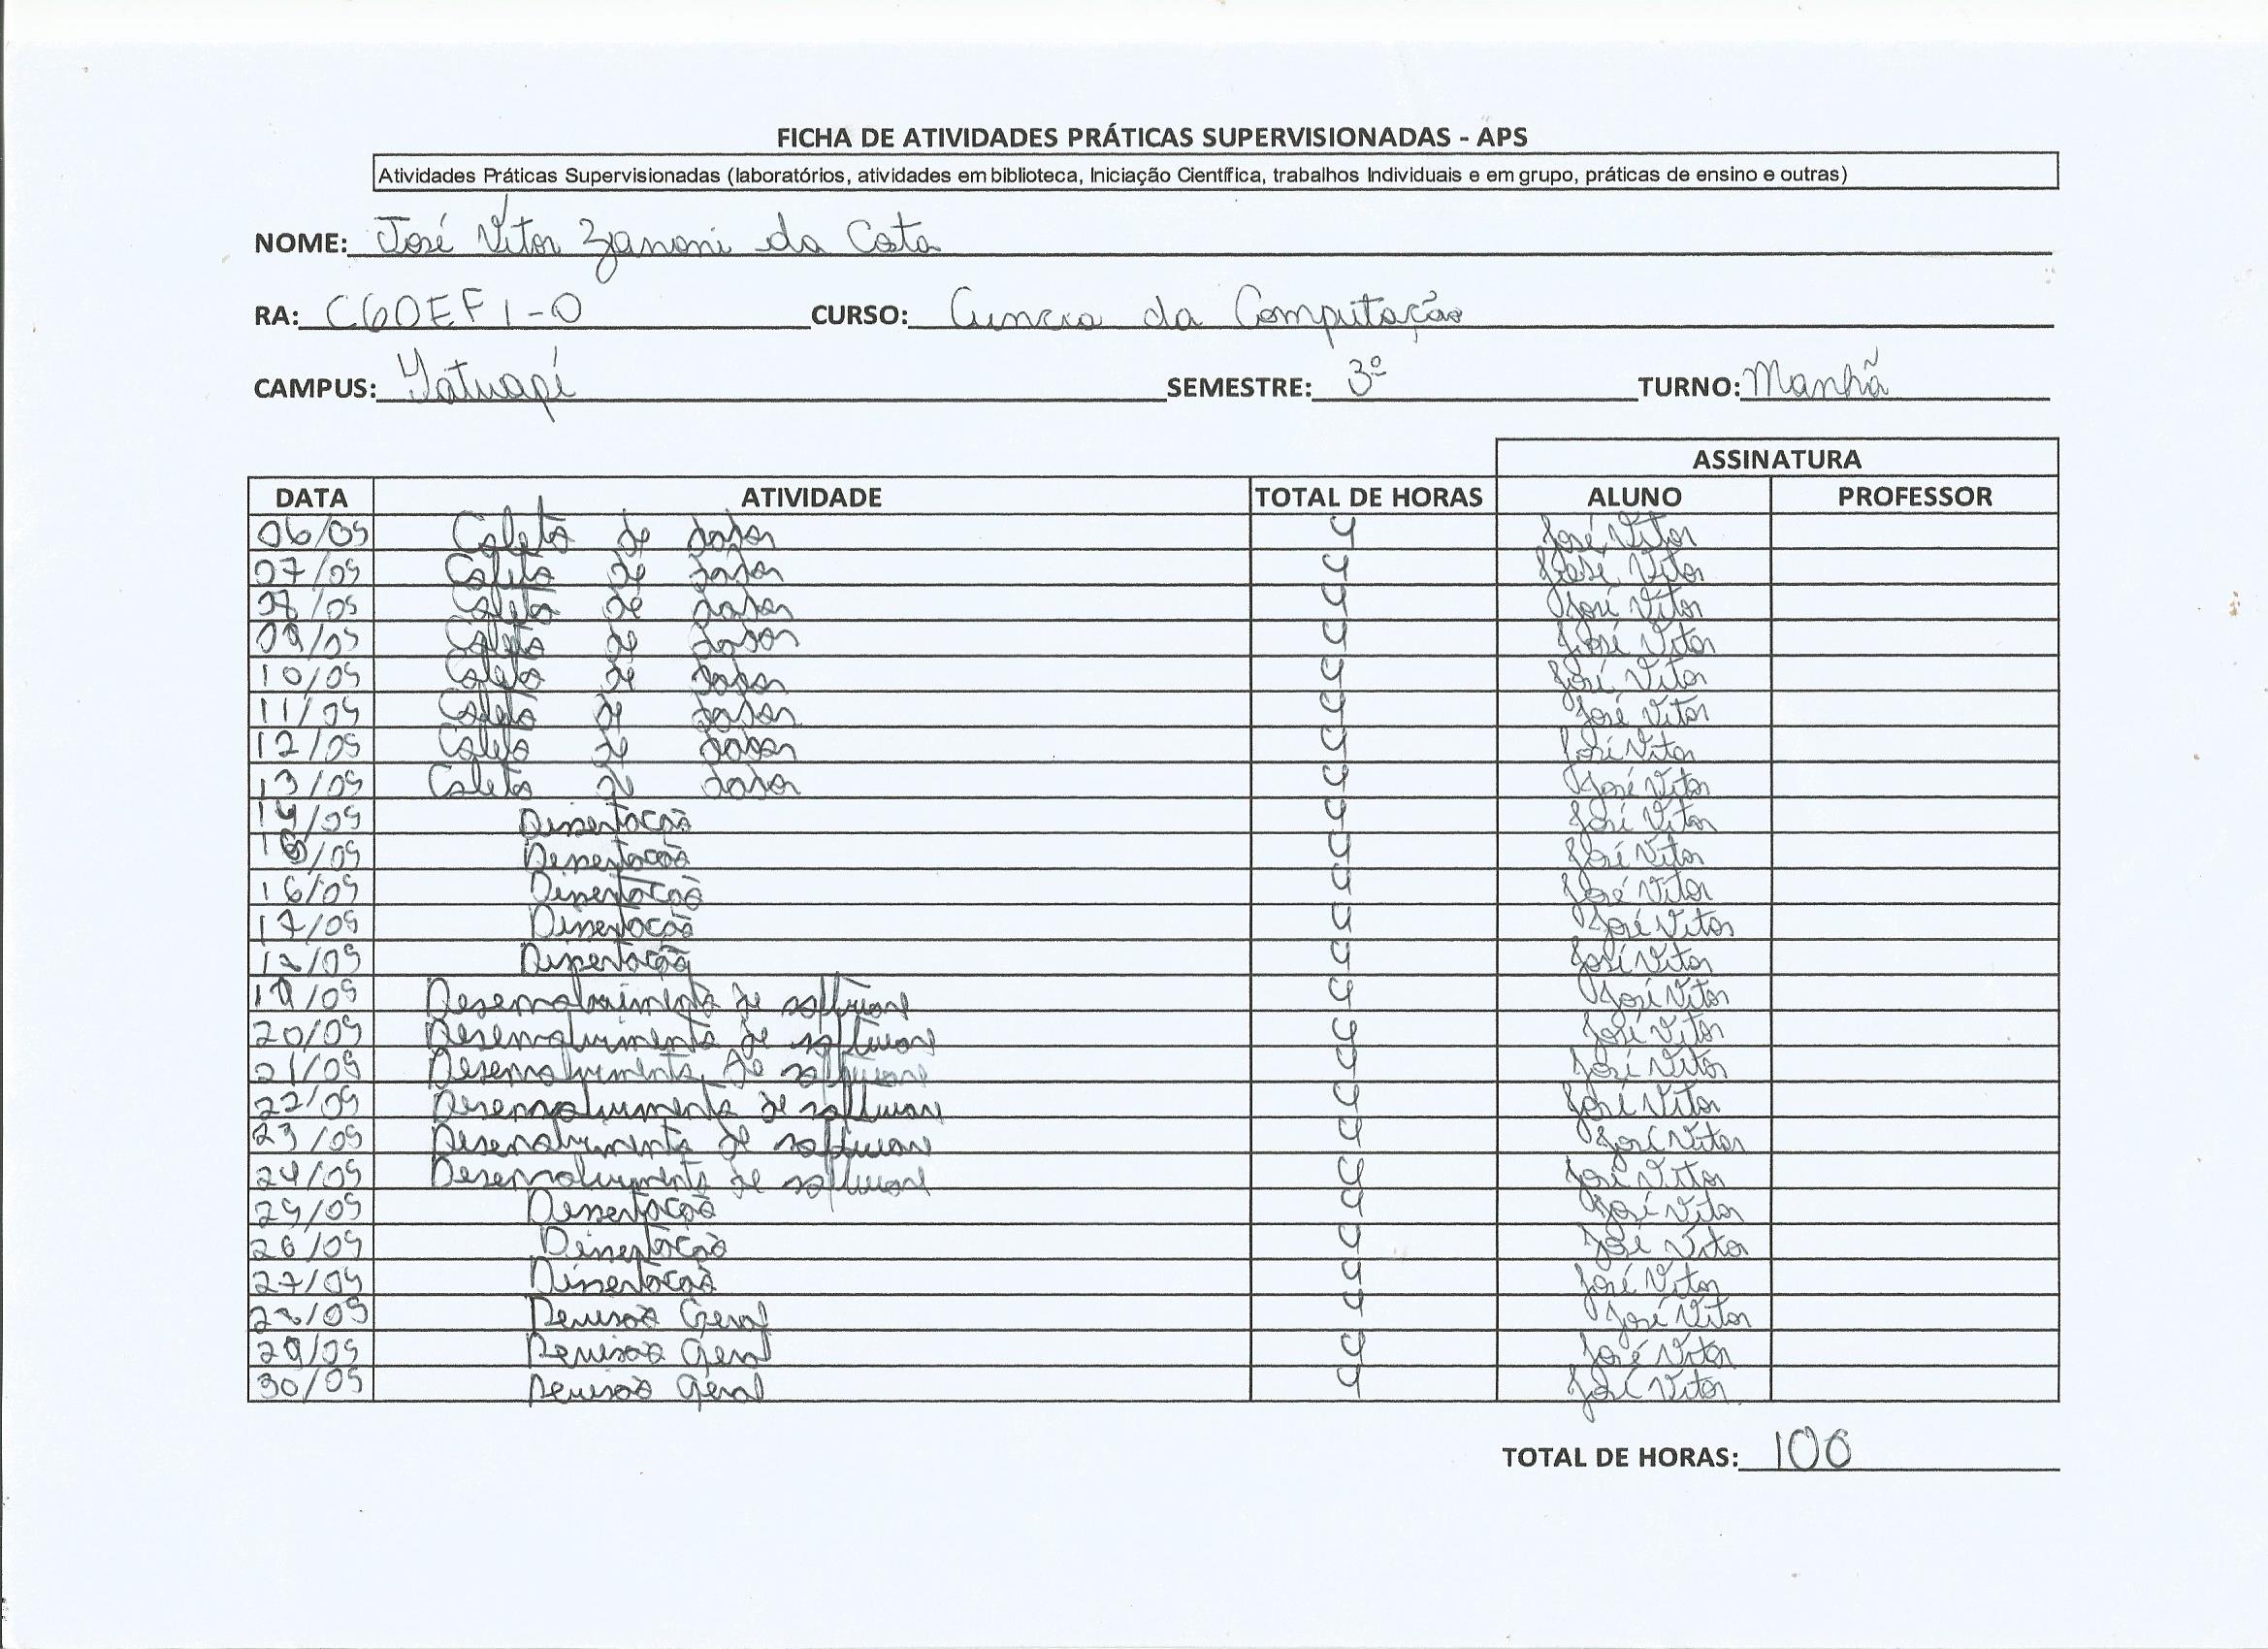 FICHA DE ATIVIDADES PRÁTICAS SUPERVISIONADAS - APS
Atividades Práticas Supervisionadas (laboratórios, atividades em biblioteca, Iniciação Científica, trabalhos Individuais e em grupo, práticas de ensino e outras)
NOME: José Vitor Zanoni da Costa
RA: C60EF1-0 CURSO: Ciencia da Computação
CAMPUS: Tatuapé SEMESTRE: 3º TURNO: Manhã
ASSINATURA
DATA ATIVIDADE TOTAL DE HORAS ALUNO PROFESSOR
06/09 Coleta de dados 4 José Vitor
07/09 Coleta de dados 4 José Vitor
08/09 Coleta de dados 4 José Vitor
09/09 Coleta de dados 4 José Vitor
10/09 Coleta de dados 4 José Vitor
11/09 Coleta de dados 4 José Vitor
12/09 Coleta de dados 4 José Vitor
13/09 Coleta de dados 4 José Vitor
14/09 Dissertação 4 José Vitor
15/09 Dissertação 4 José Vitor
16/09 Dissertação 4 José Vitor
17/09 Dissertação 4 José Vitor
18/09 Dissertação 4 José Vitor
19/09 Desenvolvimento de software 4 José Vitor
20/09 Desenvolvimento de software 4 José Vitor
21/09 Desenvolvimento de software 4 José Vitor
22/09 Desenvolvimento de software 4 José Vitor
23/09 Desenvolvimento de software 4 José Vitor
24/09 Desenvolvimento de software 4 José Vitor
25/09 Dissertação 4 José Vitor
26/09 Dissertação 4 José Vitor
27/09 Dissertação 4 José Vitor
28/09 Revisão Geral 4 José Vitor
29/09 Revisão Geral 4 José Vitor
30/09 Revisão Geral 4 José Vitor
TOTAL DE HORAS: 100